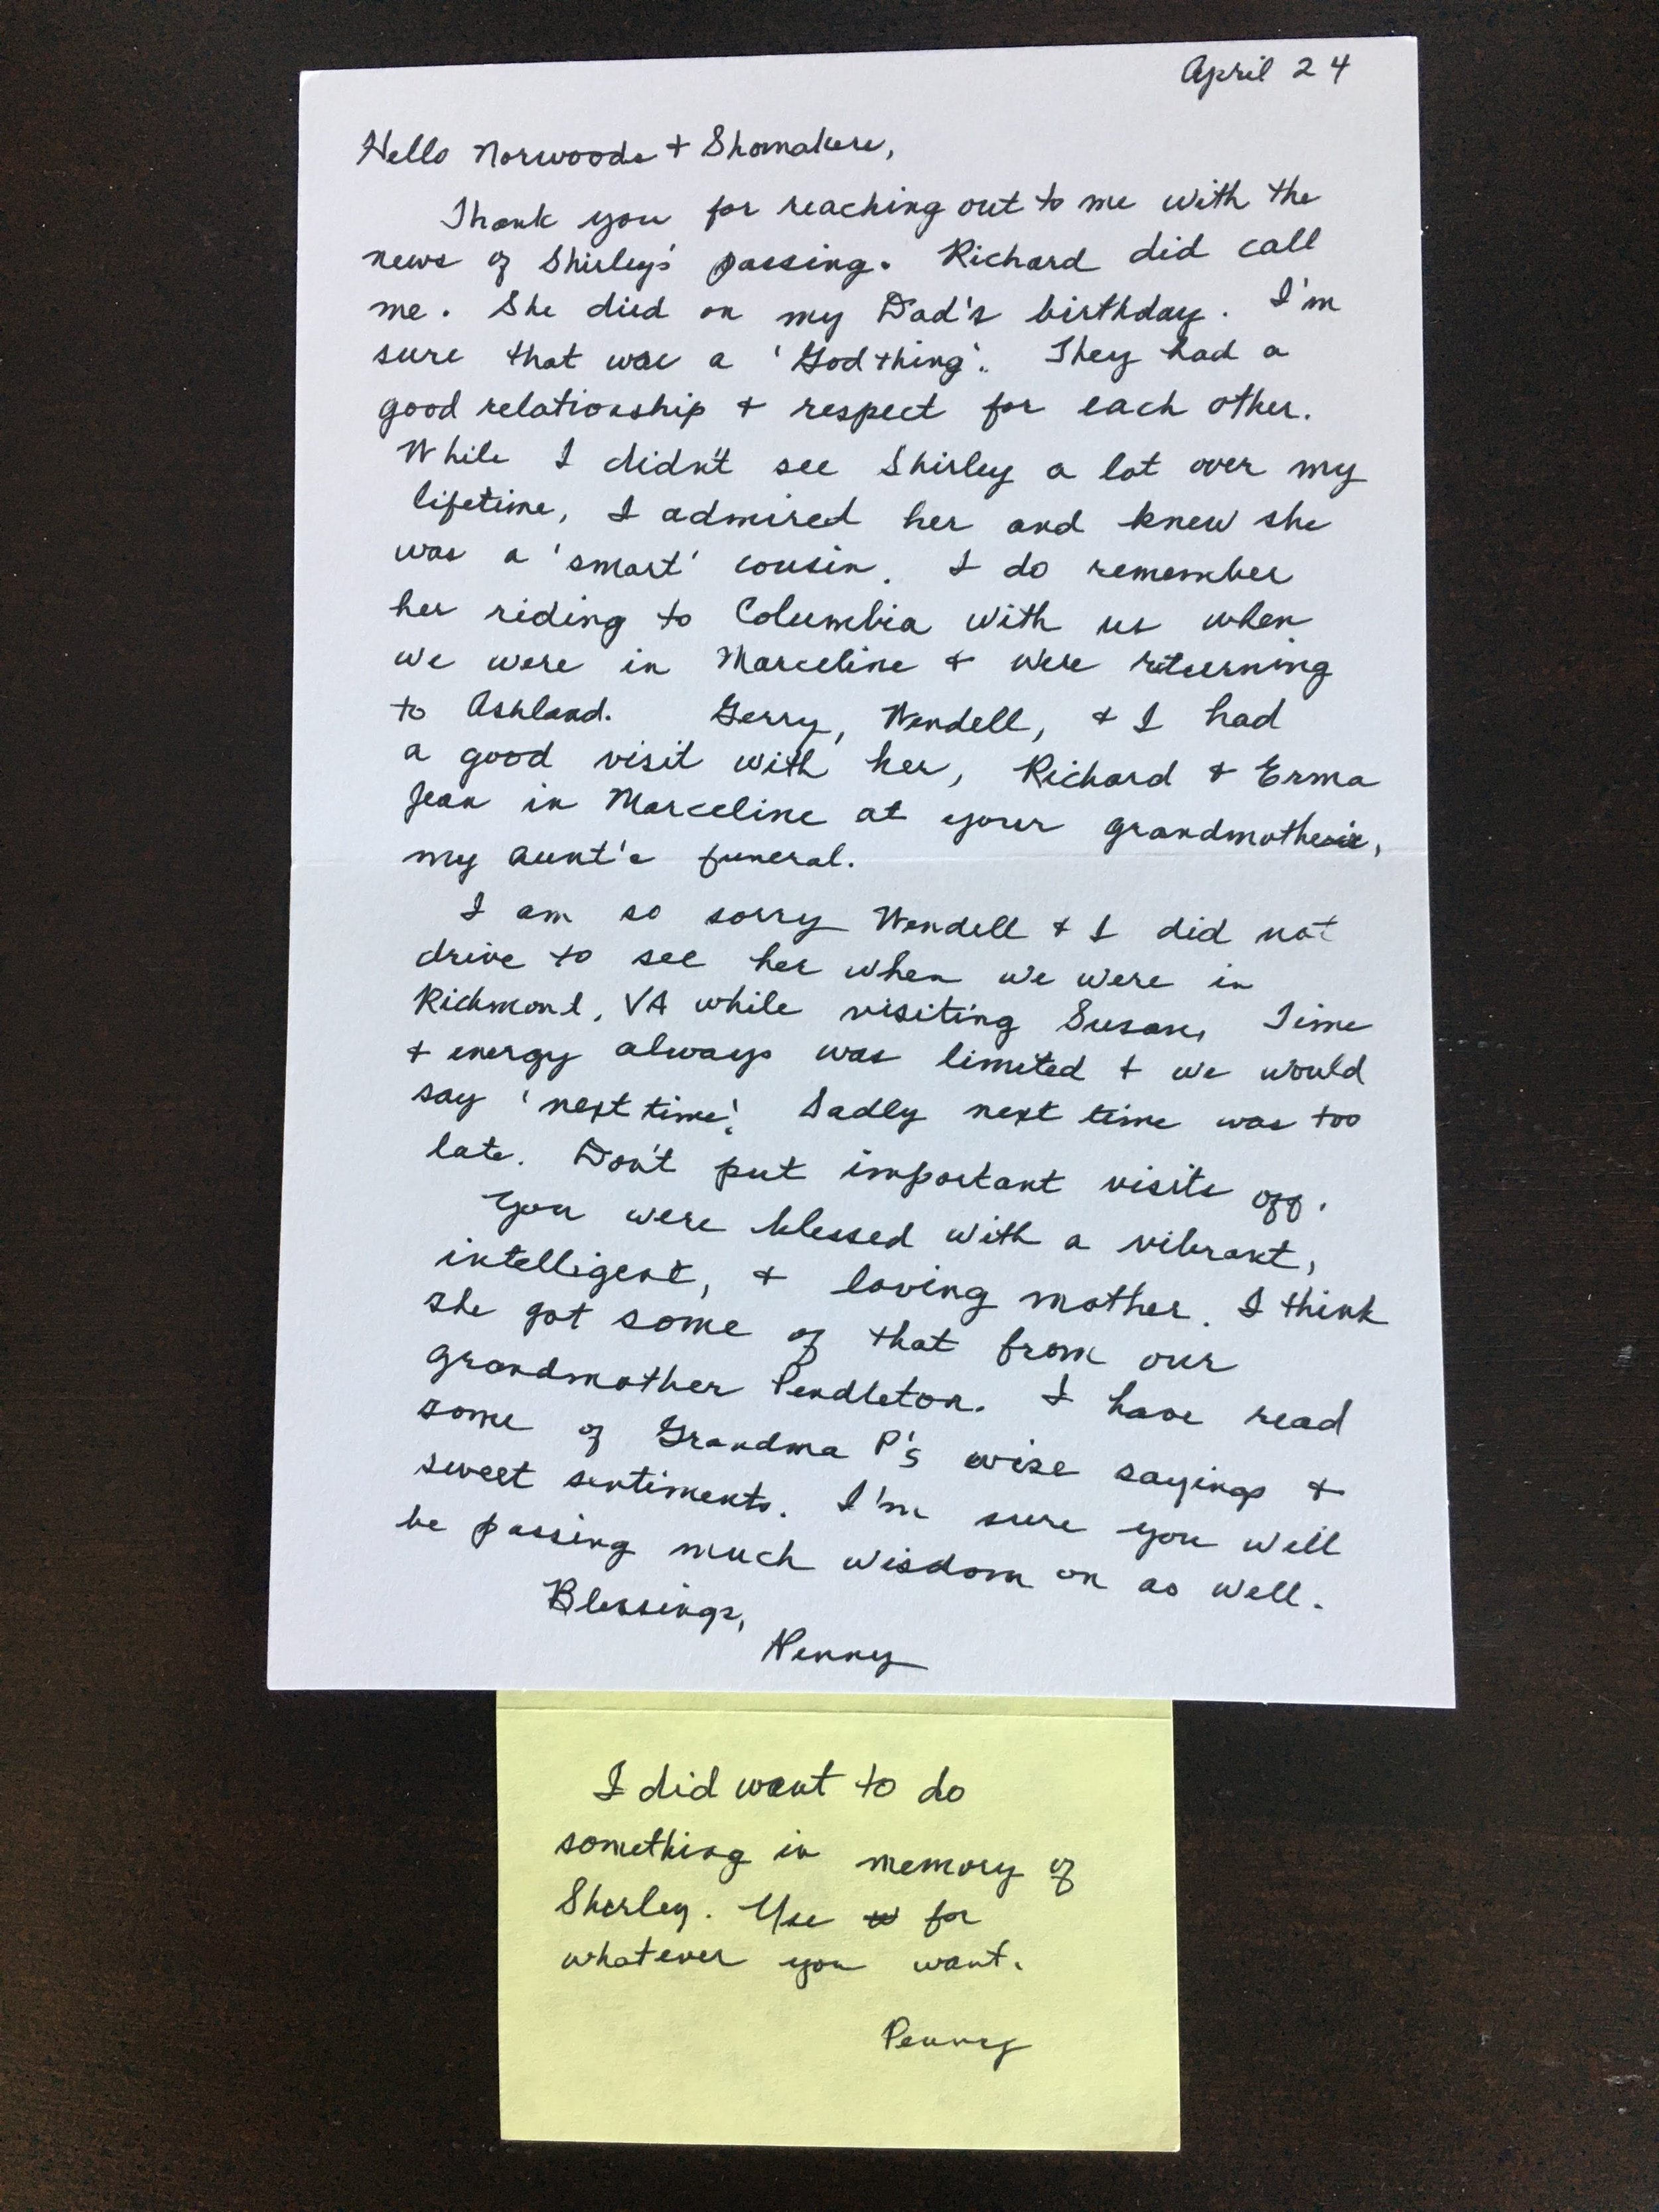 April 24
Hello Norwoods + Shomakers,
Thank you for reaching out to me with the
news of Shirley's passing. Richard did call
me. She died on my Dad's birthday. I'm
sure that was a 'God thing'. They had a
good relationship + respect for each other.
While I didn't see Shirley a lot over my
lifetime, I admired her and knew she
was a 'smart' cousin. I do remember
her riding to Columbia with us when
we were in Marceline + were returning
to Ashland. Gerry, Wendell, + I had
a good visit with her, Richard + Erma
Jean in Marceline at your grandmother's,
my aunt's funeral.
I am so sorry Wendell + I did not
drive to see her when we were in
Richmond, VA while visiting Susan. Time
+ energy always was limited + we would
say 'next time'. Sadly next time was too
late. Don't put important visits off.
You were blessed with a vibrant,
intelligent, + loving mother. I think
she got some of that from our
grandmother Pendleton. I have read
some of Grandma P's wise sayings +
sweet sentiments. I'm sure you will
be passing much wisdom on as well.
Blessings,
Penny
I did want to do
something in memory of
Shirley. Use for
whatever you want.
Penny